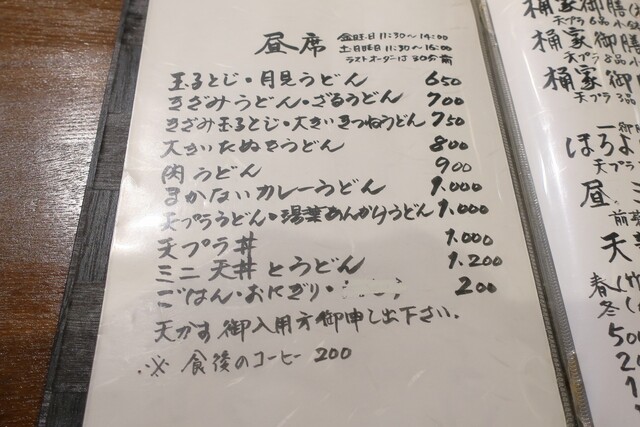 昼席
金曜日 11:30〜14:00
土日曜日 11:30〜16:00
ラストオーダーは30分前
玉子とじ・月見うどん 650
きざみうどん・ざるうどん 700
きざみ玉子とじ・大きいきつねうどん 750
大きいたぬきうどん 800
肉うどん 900
まかないカレーうどん 1.000
天プラうどん・湯葉あんかけうどん 1.000
天プラ丼 1.000
ミニ天丼とうどん 1.200
ごはん・おにぎり・ 200
天かす御入用方御申し出下さい.
※ 食後のコーヒー 200
桶家御膳
天プラ6品
桶家御膳
天プラ8品
桶家御膳
天プラ3品
ほろよ
天プラ
昼
天
春
冬